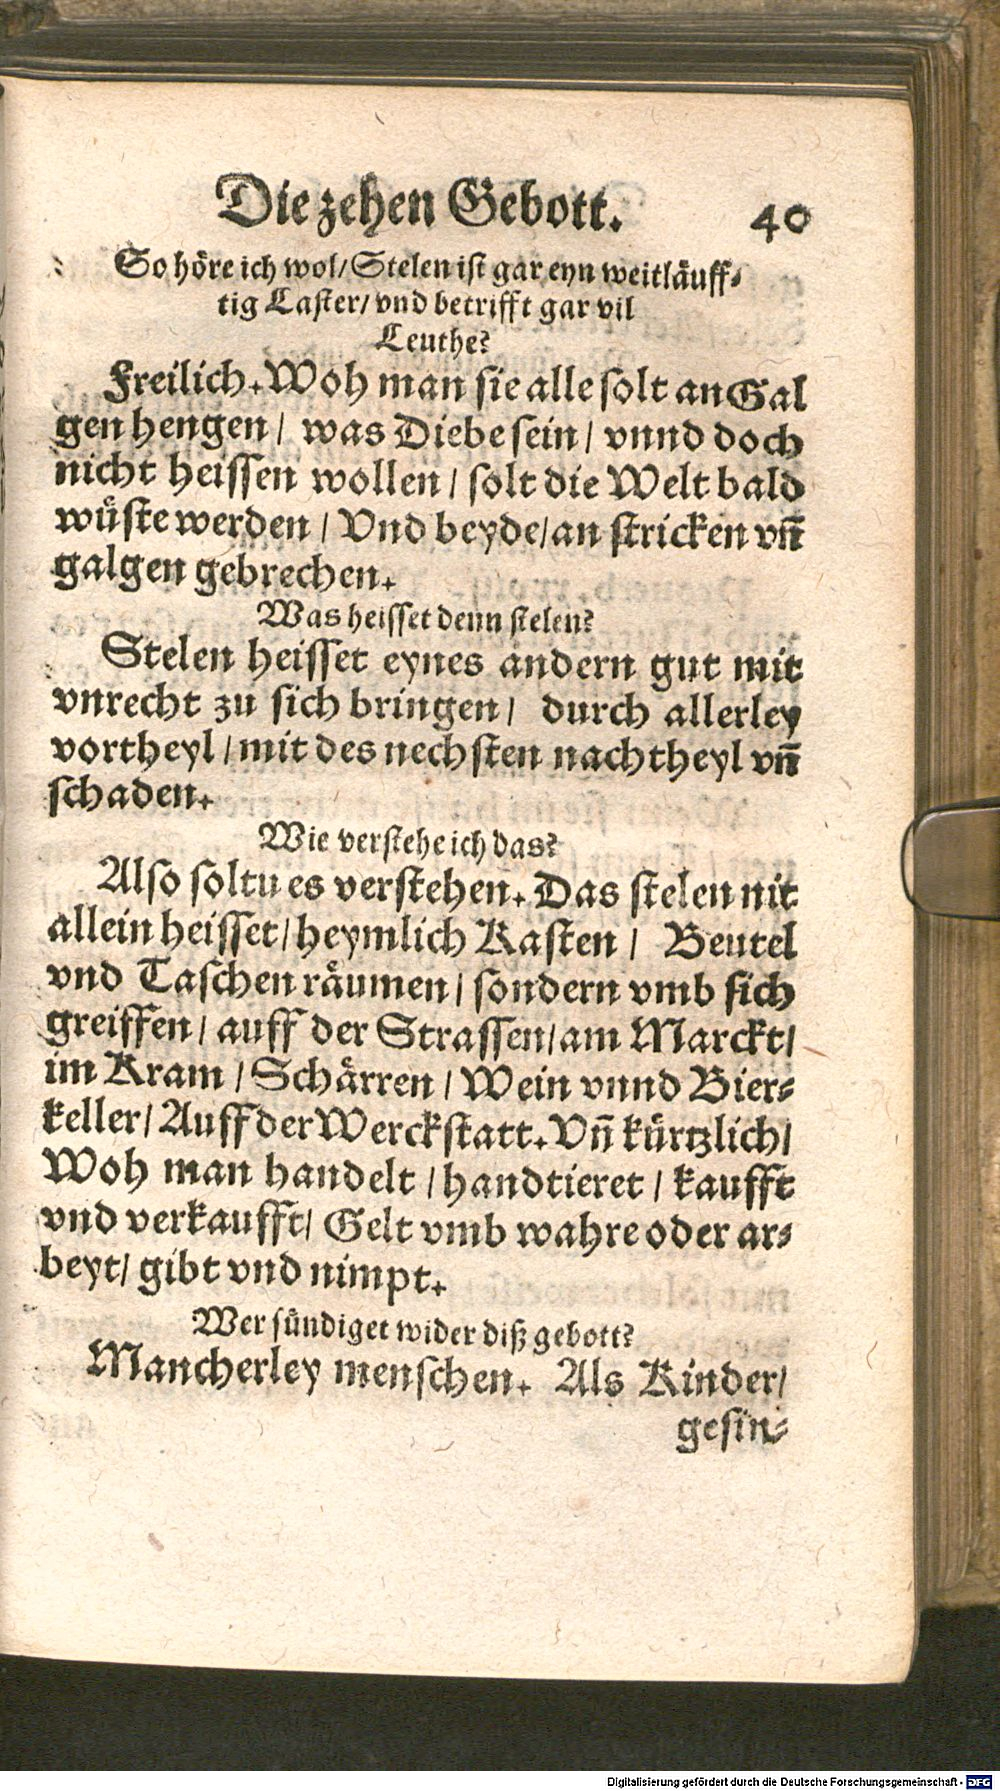 Die zehen Gebott. 40
So höre ich wol/ Stelen ist gar eyn weitläuff⸗
tig Laster/ vnd betrifft gar vil
Leuthe?
Freilich. Woh man sie alle solt an Gal
gen hengen/ was Diebe sein/ vnnd doch
nicht heissen wollen/ solt die Welt bald
wüste werden/ Vnd beyde/ an stricken vn̄
galgen gebrechen.
Was heisset denn stelen?
Stelen heisset eynes andern gut mit
vnrecht zu sich bringen/ durch allerley
vortheyl/ mit des nechsten nachtheyl vn̄
schaden.
Wie verstehe ich das?
Also soltu es verstehen. Das stelen nit
allein heisset/ heymlich Kasten/ Beutel
vnd Taschen räumen/ sondern vmb sich
greiffen/ auff der Strassen/ am Marckt/
im Kram/ Schärren/ Wein vnnd Bier⸗
keller/ Auff der Werckstatt. Vn̄ kürtzlich/
Woh man handelt/ handtieret/ kaufft
vnd verkaufft/ Gelt vmb wahre oder ar⸗
beyt/ gibt vnd nimpt.
Wer sündiget wider diß gebott?
Mancherley menschen. Als Kinder/
gesin⸗
Digitalisierung gefördert durch die Deutsche Forschungsgemeinschaft - DFG